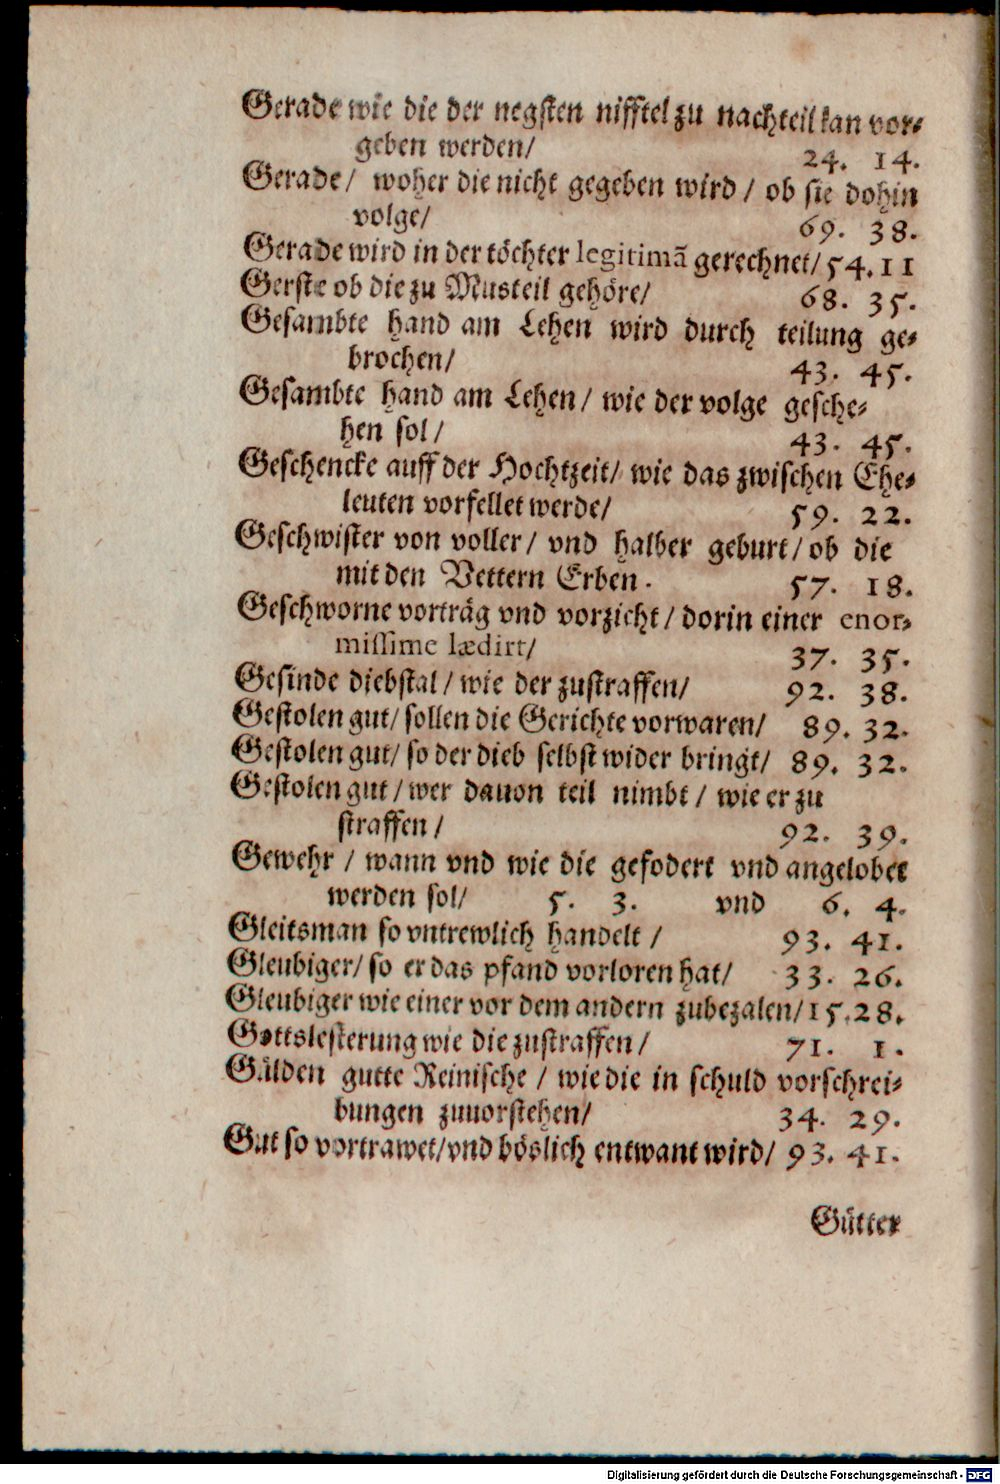 Gerade wie die der negsten nifftel zu nachteil kan vor-
geben werden/ 24. 14.
Gerade/ woher die nicht gegeben wird/ ob sie dohin
volge/ 69. 38.
Gerade wird in der töchter legitimã gerechnet/ 54. 11
Gerste ob die zu Musteil gehöre/ 68. 35.
Gesambte hand am Lehen wird durch teilung ge-
brochen/ 43. 45.
Gesambte hand am Lehen/ wie der volge gesche-
hen sol/ 43. 45.
Geschencke auff der Hochtzeit/ wie das zwischen Ehe-
leuten vorfellet werde/ 59. 22.
Geschwister von voller/ vnd halber geburt/ ob die
mit den Vettern Erben. 57. 18.
Geschworne vorträg vnd vorzicht/ dorin einer enor-
missime lædirt/ 37. 35.
Gesinde diebstal/ wie der zustraffen/ 92. 38.
Gestolen gut/ sollen die Gerichte vorwaren/ 89. 32.
Gestolen gut/ so der dieb selbst wider bringt/ 89. 32.
Gestolen gut/ wer dauon teil nimbt/ wie er zu
straffen/ 92. 39.
Gewehr/ wann vnd wie die gefodert vnd angelobet
werden sol/ 5. 3. vnd 6. 4.
Gleitsman so vntrewlich handelt/ 93. 41.
Gleubiger/ so er das pfand vorloren hat/ 33. 26.
Gleubiger wie einer vor dem andern zubezalen/ 15. 28.
Gottslesterung wie die zustraffen/ 71. 1.
Gülden gutte Reinische/ wie die in schuld vorschrei-
bungen zuuorstehen/ 34. 29.
Gut so vortrawet/ vnd böslich entwant wird/ 93. 41.
Gütter
Digitalisierung gefördert durch die Deutsche Forschungsgemeinschaft - DFG